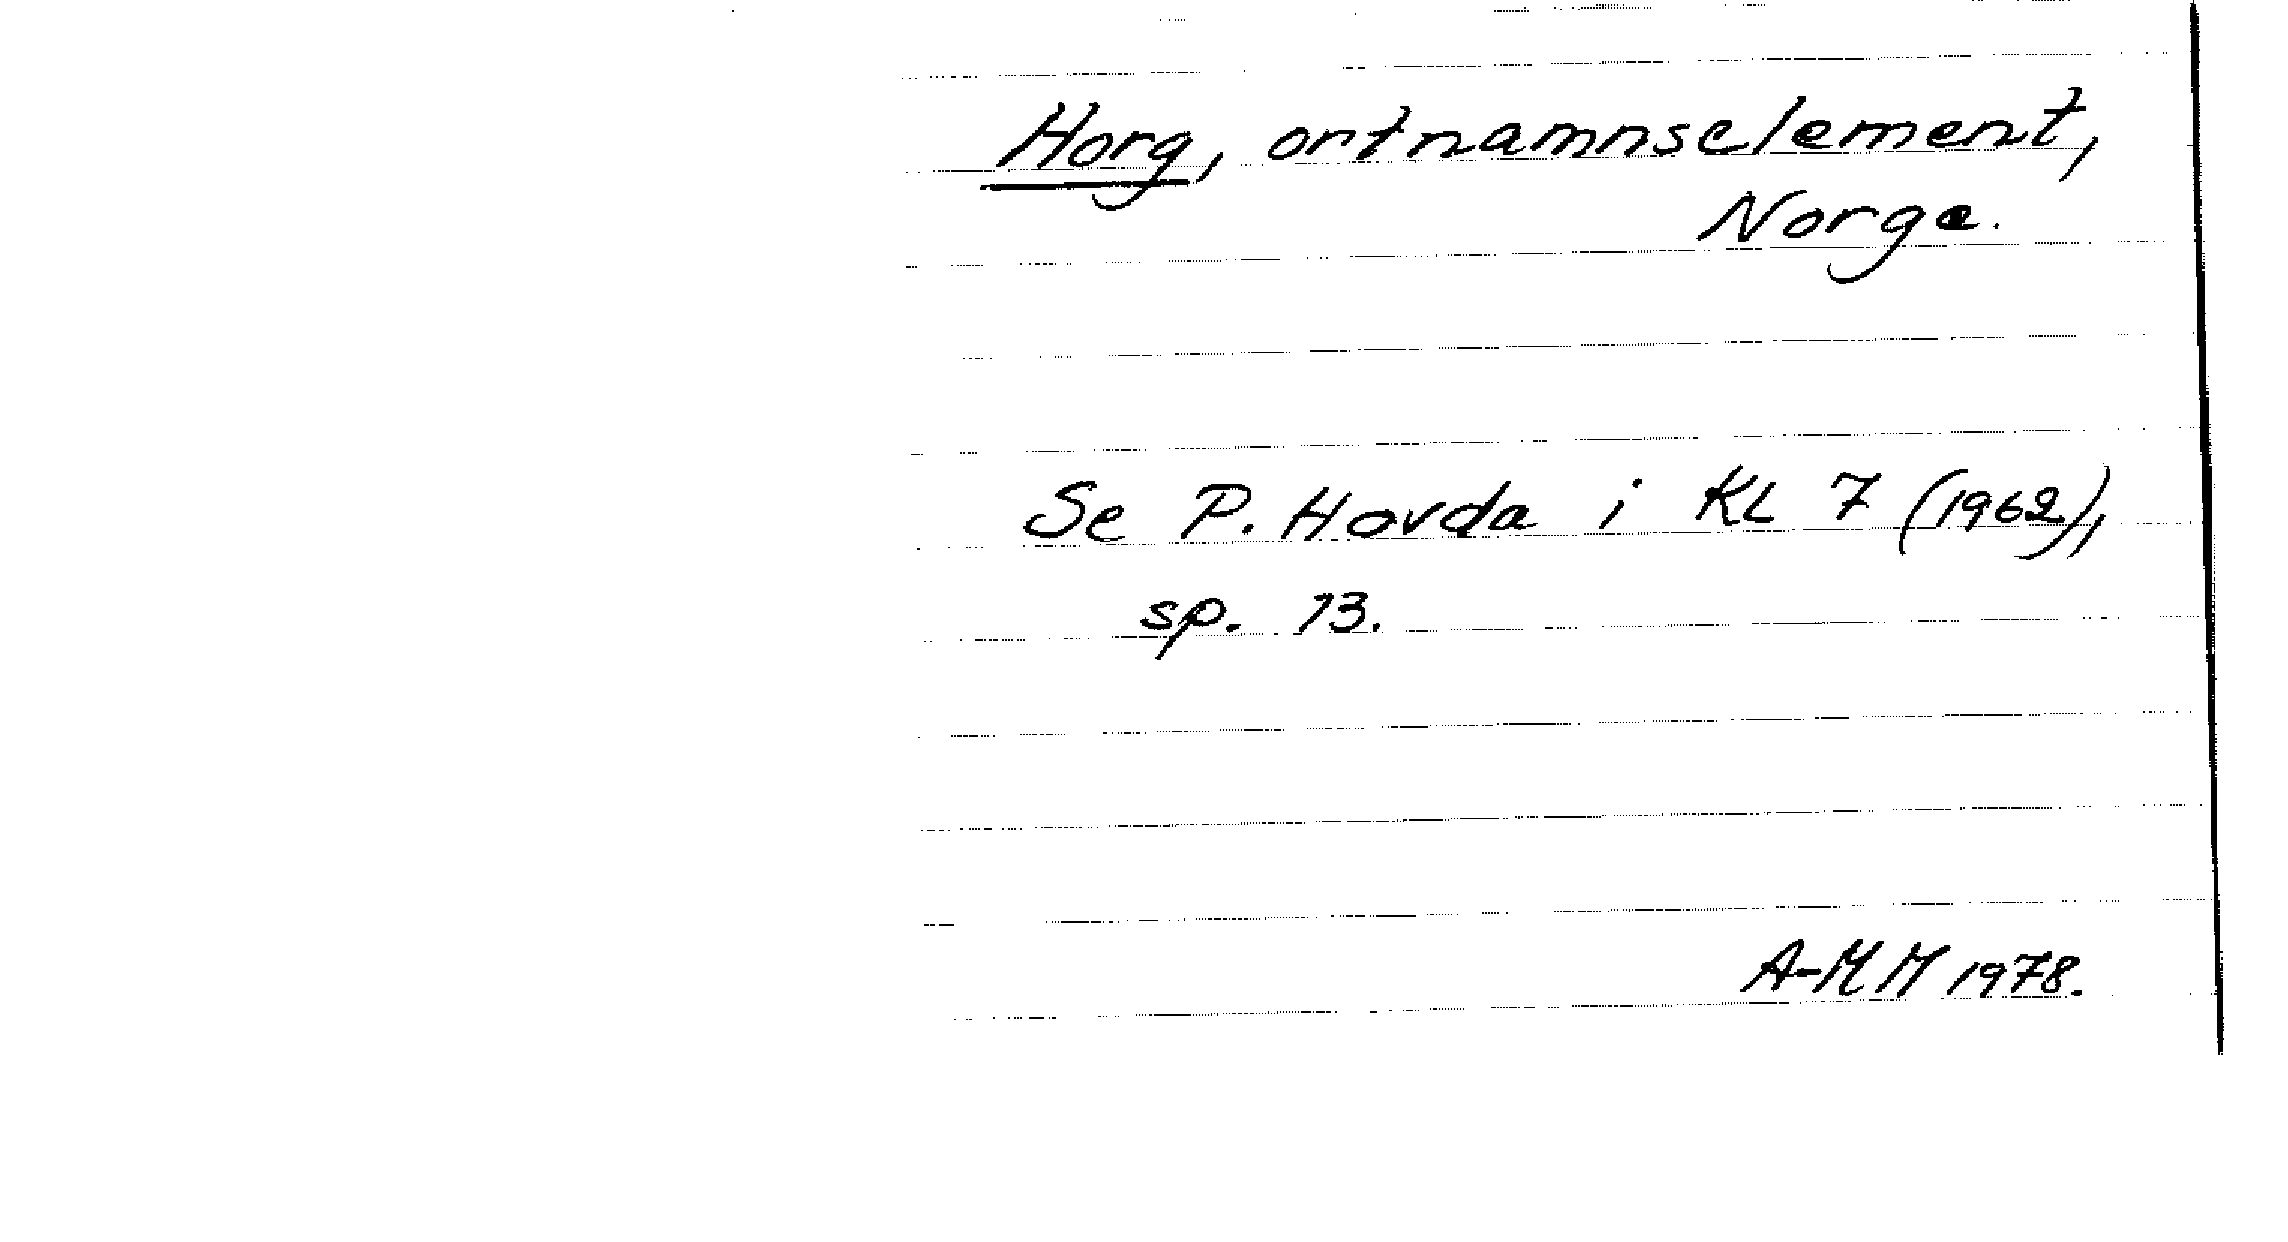 Horg, ortnamnselement,
Norge.
Se P. Hovda i KL 7 (1962),
sp. 13.
A-MM 1978.